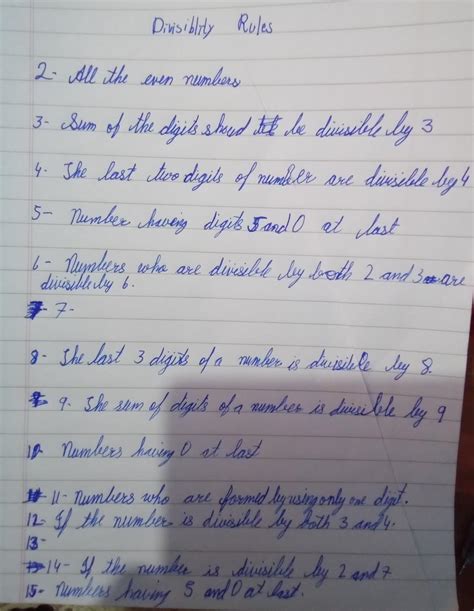 Divisiblity Rules
2- All the even numbers
3- Sum of the digits shoud be divisible by 3
4- The last two digits of number are divisible by 4
5- Number having digits 5 and 0 at last
6- Numbers who are divisible by both 2 and 3 are
divisible by 6.
7-
8- The last 3 digits of a number is divisible by 8.
9- The sum of digits of a number is divisible by 9
10- Numbers having 0 at last
11- Numbers who are formed by using only one digit.
12- If the number is divisible by both 3 and 4.
13-
14- If the number is divisible by 2 and 7
15- Numbers having 5 and 0 at last.